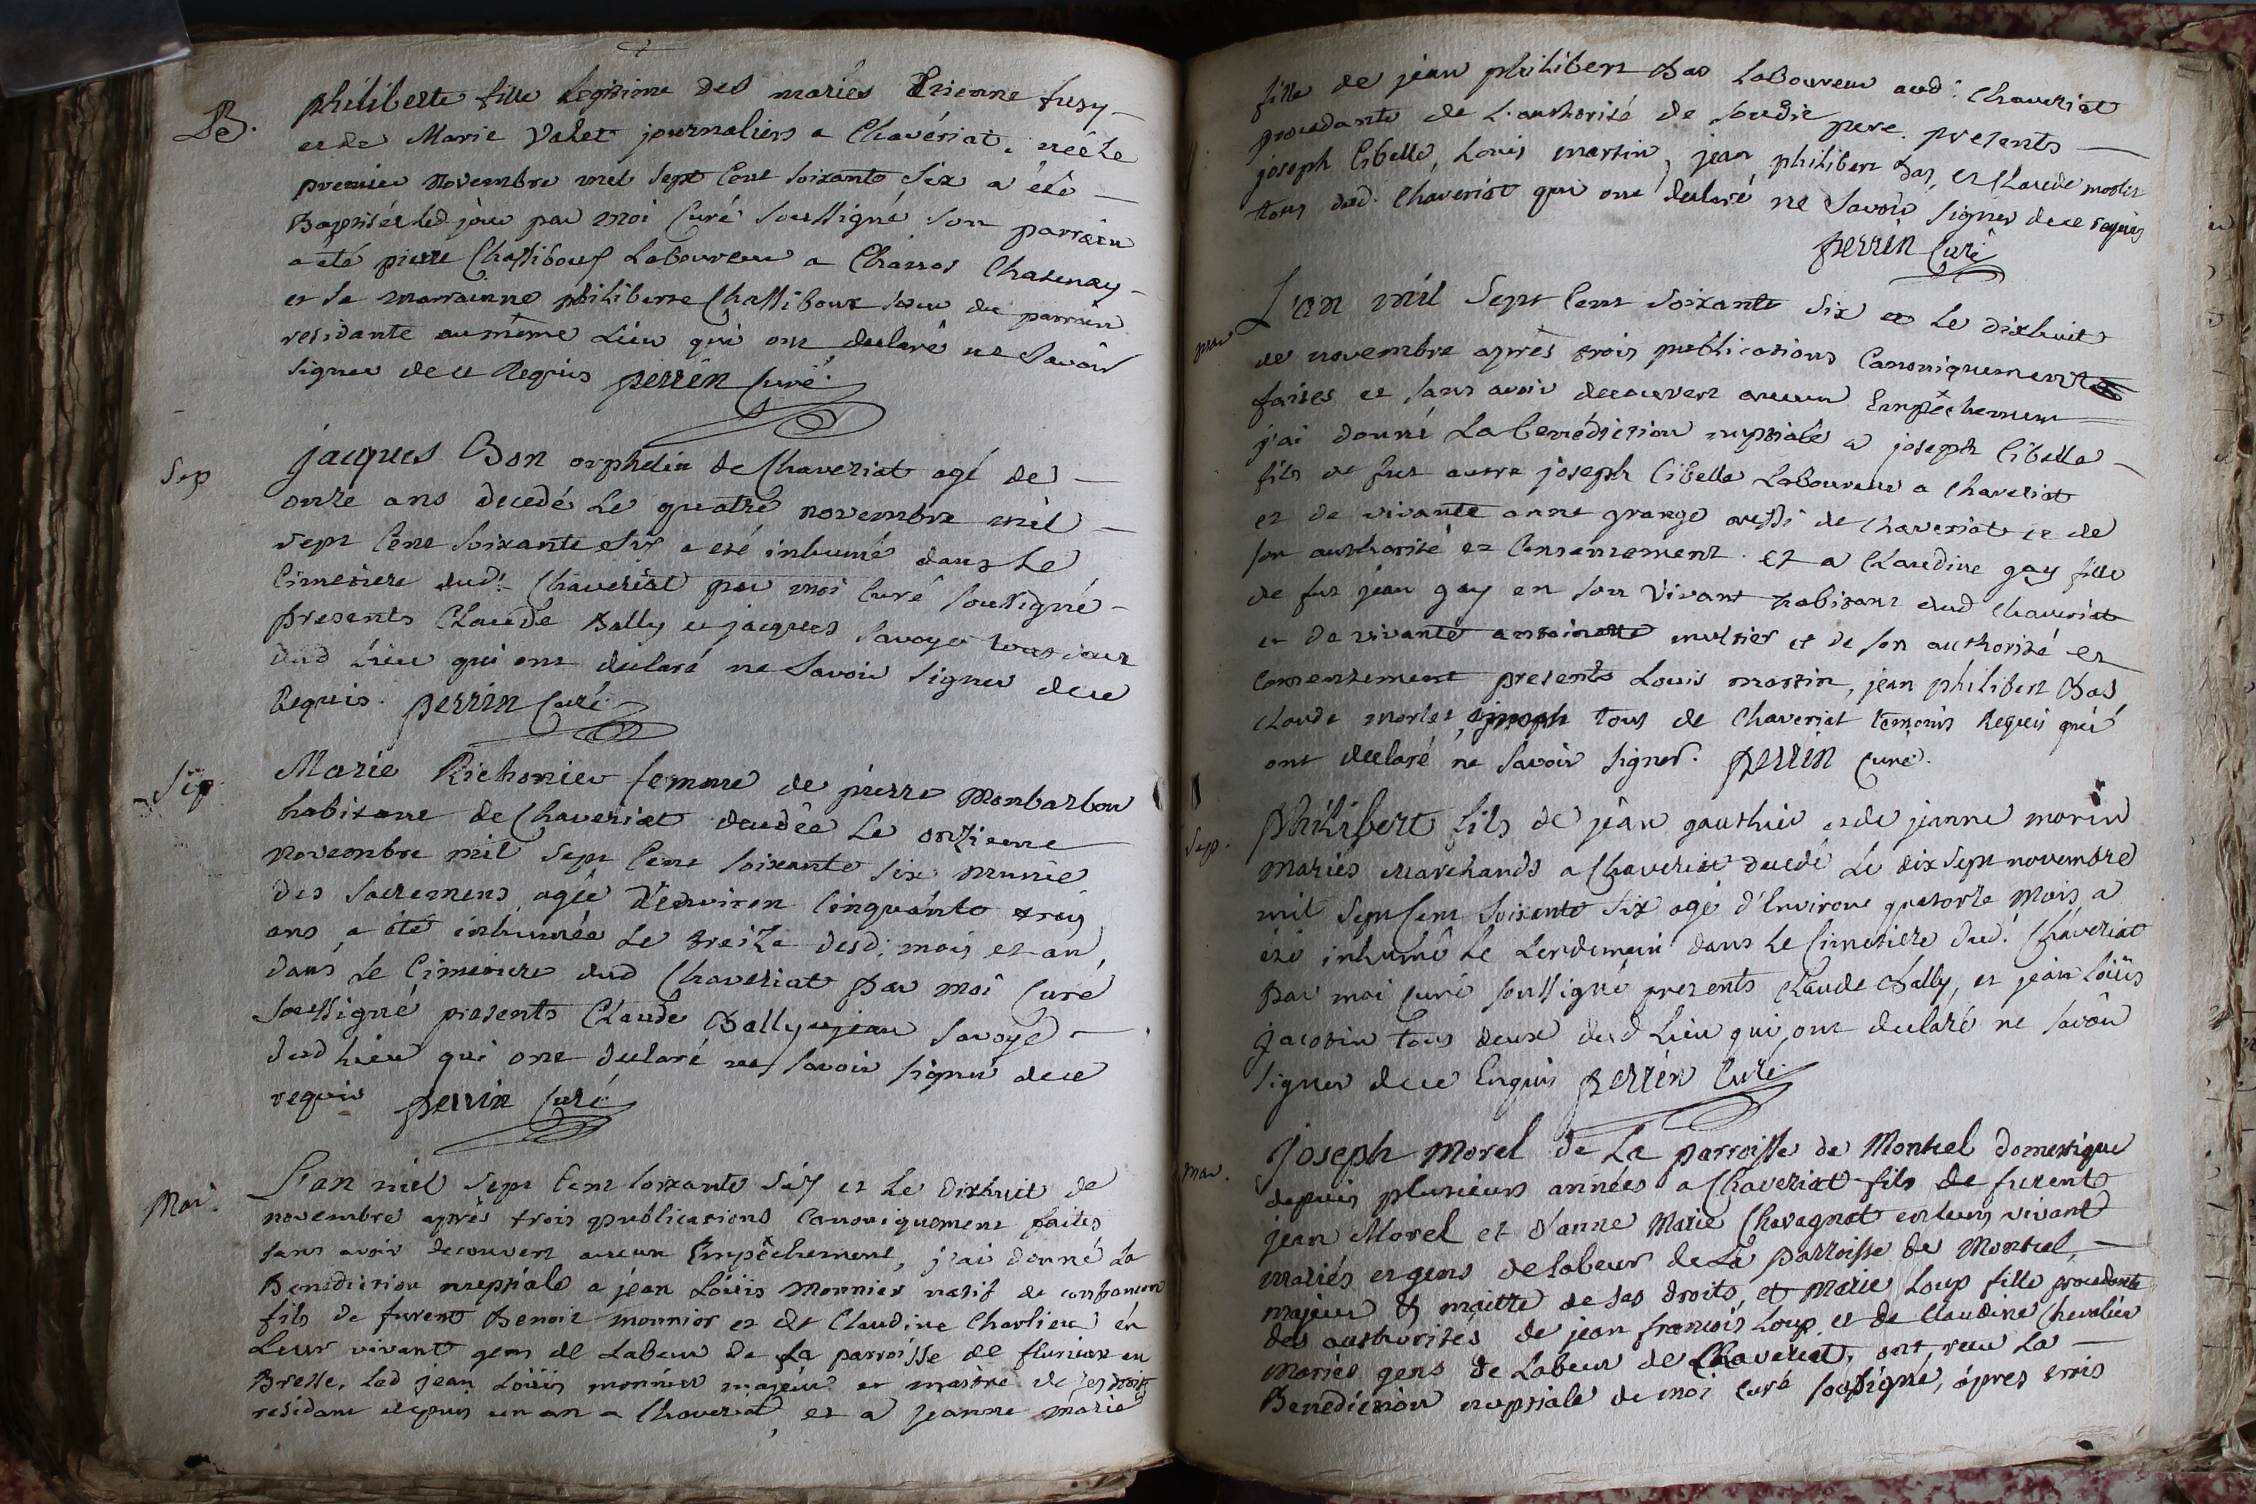 B.
philiberte fille Legitime des mariés Etienne fusy
et de Marie Valet journaliers a Chavériat, née Le
premier Novembre mil sept Cent soixante Six a été
Baptisée led jour par moi Curé soussigné son parrain
a été pierre Chassibouf Laboureur a Chanos Chatenay
et la marrainne philiberte Chassibouf soeur du parrain
residante au même Lieu qui ont declaré ne savoir
signer de ce Requis perrin Curé.
Sep
jacques Bon orphelin de Chaveriat agé de
onze ans decedé Le quatre novembre mil
sept Cent soixante six a eté inhumé dans Le
Cimetiere dud: Chaveriat par moi Curé soussigné
presents Claude Bally et jacques savoye tous deux
dud Lieu qui ont declaré ne savoir signer de ce
Requis. perrin Curé.
Sep.
Marie Richonier femme de pierre Monbarbon
habitant de Chaveriat decedée Le onzieme
novembre mil sept Cent soixante six munie
des sacremens agée d'environ Cinquante trois
ans a été inhumée Le treize desd: mois et an,
dans Le Cimetiere dud Chaveriat Par moi Curé
soussigné presents Claude Bally et jean savoye
dud Lieu qui ont declaré ne savoir signer de ce
requis perrin Curé
Mar.
L'an mil sept Cent soixante six et Le dixhuit de
novembre après trois publications Canoniquement faites
sans avoir decouvert aucun Empêchement, j'ai donné La
Benediction nuptiale a jean Loüis Monnier natif de confrancon
fils de furent Benoit monnier et de Claudine Charlieu en
Leur vivant gens de Labeur de La parroisse de en
Bresse, Led jean Loüis monnier majeur et maitre de ses droits
residant depuis un an a Chaveriat, et a jeanne marie
fille de jean philibert Bas Laboureur aud: Chaveriat
procedante de L'authorité de soudit pere. presents
joseph Cibelle, Louis martin, jean philibert Bas, et Claude morlet
tous dud. Chaveriat qui ont declaré ne savoir signer de ce requis
perrin Curé
mar
L'an mil Sept Cent soixante Six et Le dixhuit
de novembre après trois publications Canoniquement
faites et sans avoir decouvert aucun Empêchement
j'ai donné La benédiction nuptiale a joseph Cibelle
fils de fut autre joseph Cibelle Laboureur a Chaveriat
et de vivante anne grange aussi de Chaveriat et de
son authorité et Consentement. et a Claudine gay fille
de fut jean gay en son Vivant habitant dud Chaveriat
et de vivante antoinette multier et de son authorité et
Consentement presents Louis martin, jean philibert Bas
Claude morlet, joseph tous de Chaveriat temoins Requis qui
ont declaré ne savoir signer. perrin Curé.
Sep.
Philibert fils de jean gauthier et de jeanne morin
mariés Marchands a Chaveriat decedé Le dix sept novembre
mil sept Cent soixante six agé d'Environ quatorze Mois a
été inhumé Le Lendemain dans Le Cimetiere dud: Chaveriat
Par moi Curé soussigné presents Claude Bally, et jean Loüis
jacotin tous deux dud Lieu qui ont declaré ne savoir
signer de ce Enquis perrin Curé.
mar.
Joseph Morel de La parroisse de Montcel domestique
depuis plusieurs années a Chaveriat fils de furents
jean Morel et d'anne Marie Chavagnat en leurs vivant
mariés et gens de Labeur de La parroisse de Montcel,
majeur & maitre de ses droits, et Marie Loup fille procedante
des authorités de jean francois Loup et de Claudine Chevalier
mariés gens de Labeur de Chaveriat, ont reçu La
Benediction nuptiale de moi Curé soussigné, après trois